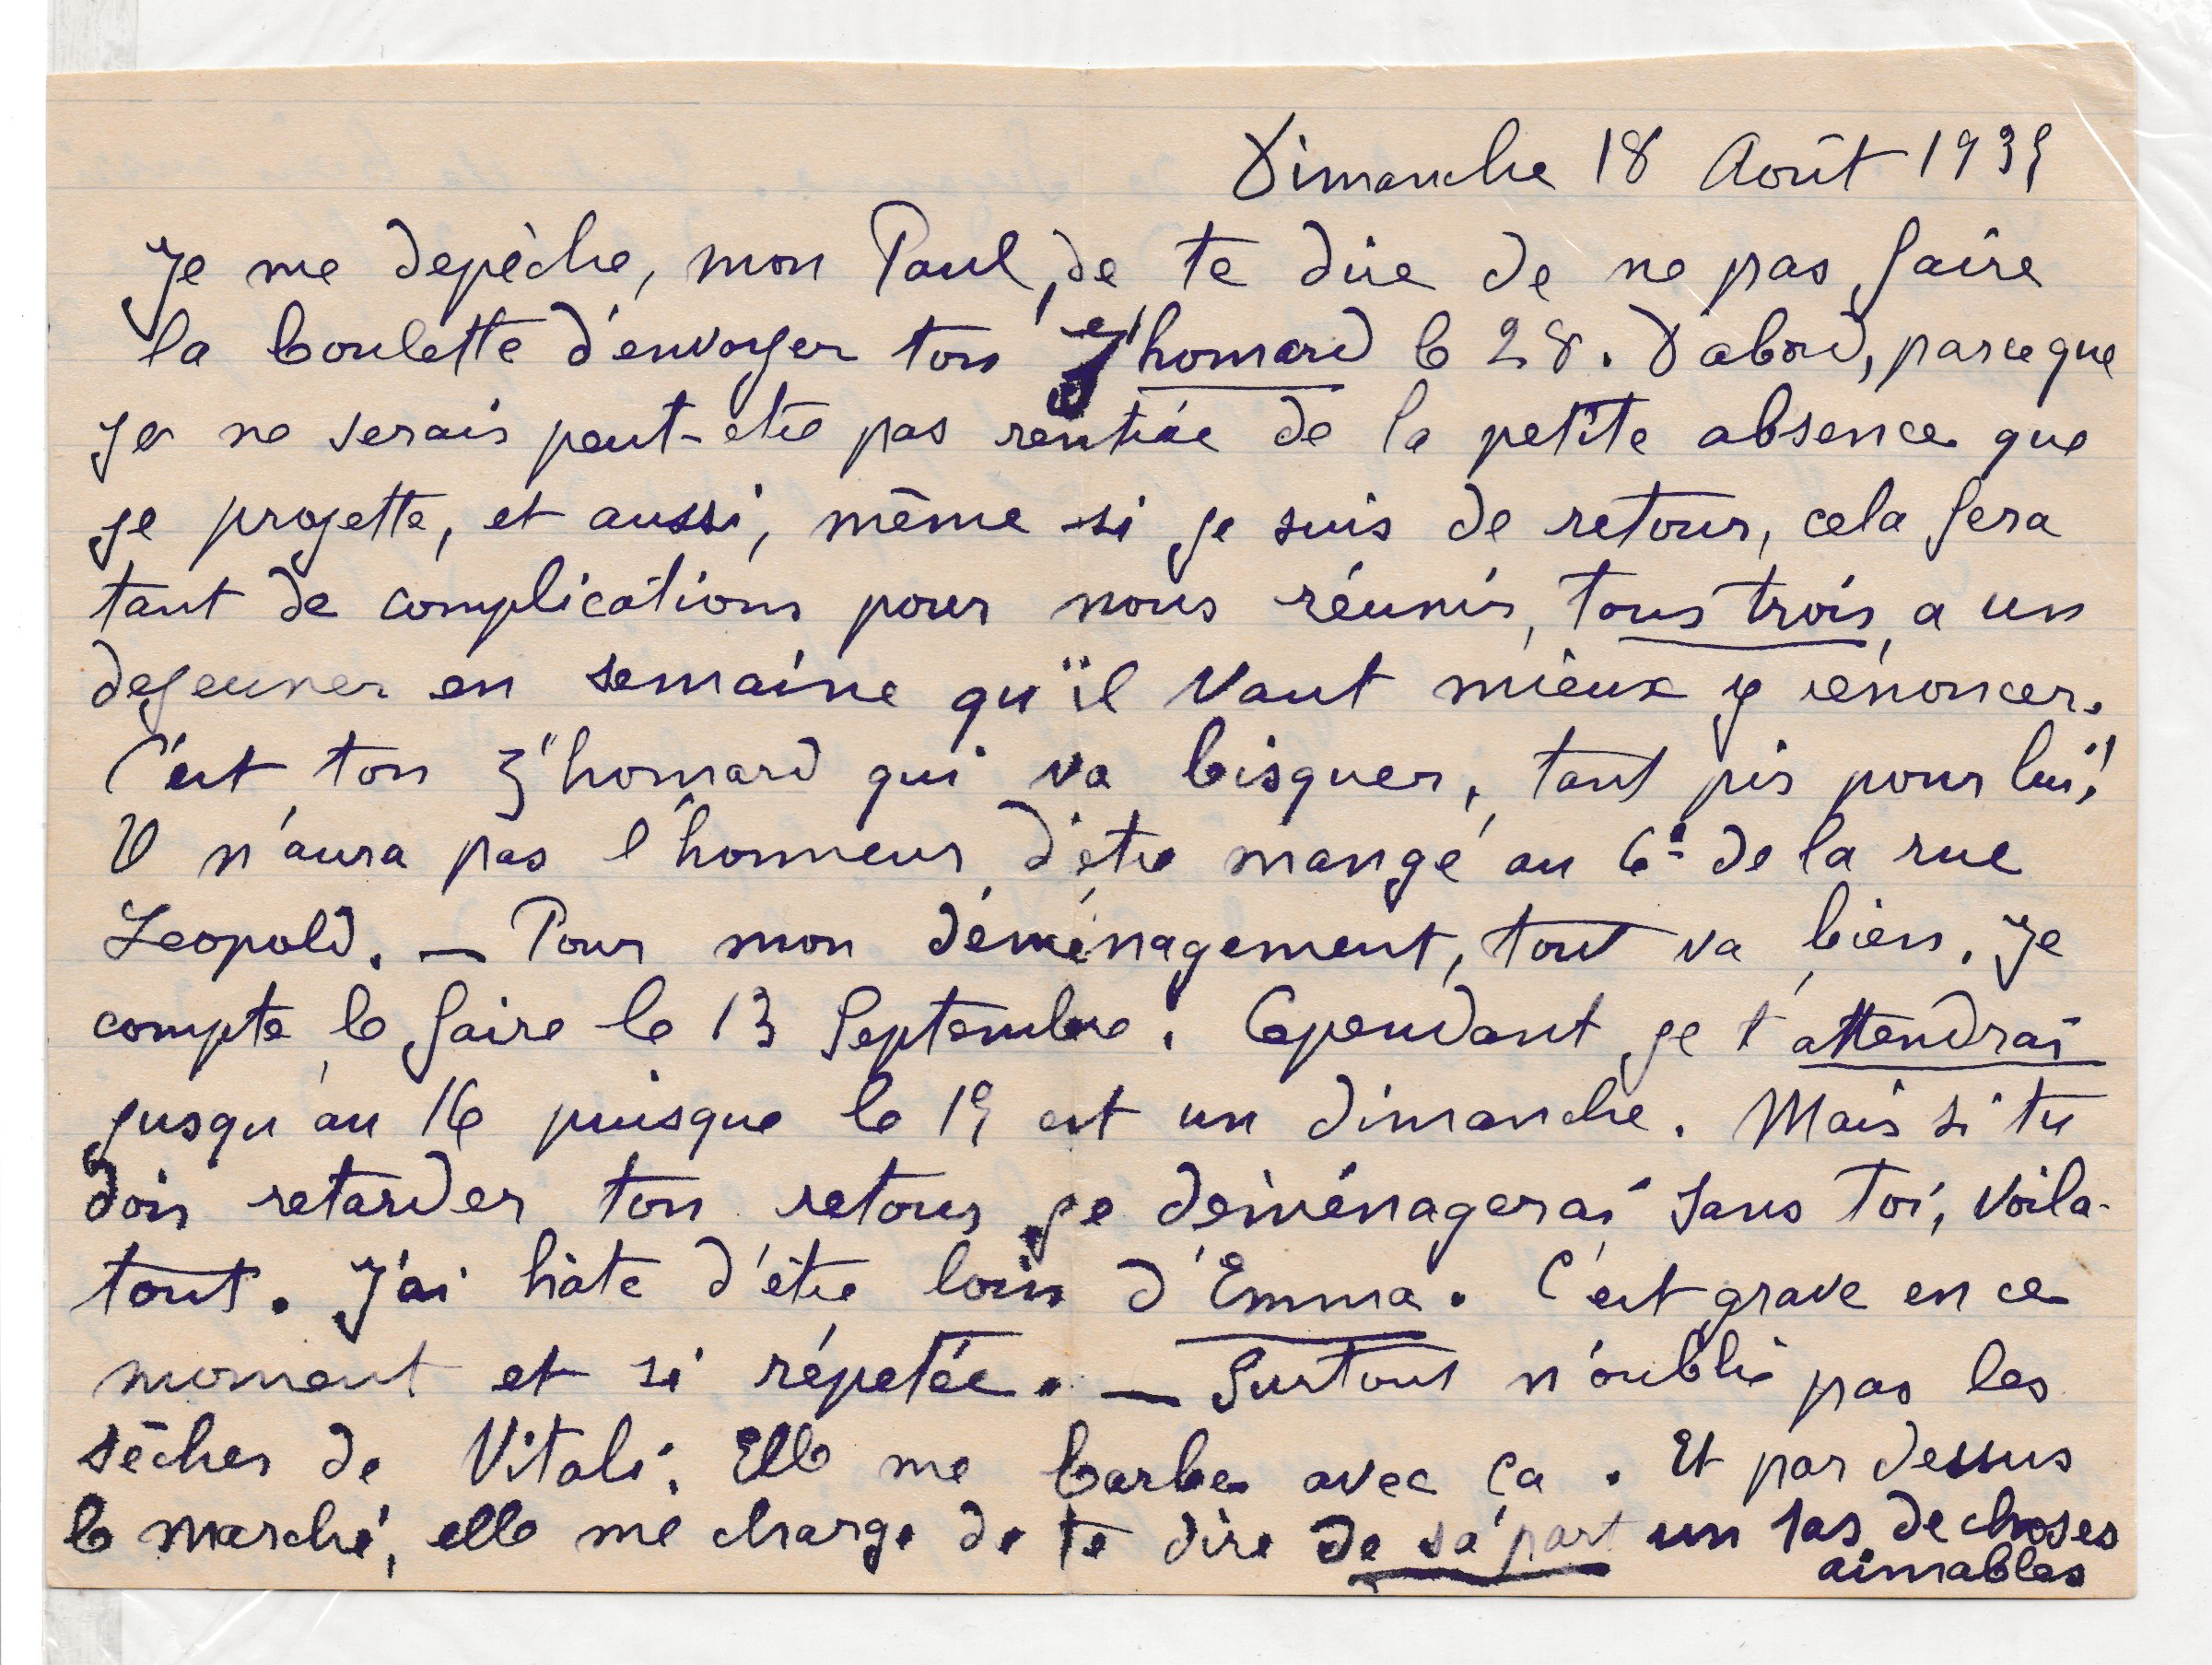 Dimanche 18 Août 1935
Je me depèche, mon Paul, de te dire de ne pas faire
la boulette d'envoyer ton z'homard le 28. D'abord, parceque
je ne serais peut-etre pas rentrée de la petite absence que
je projette, et aussi, même si je suis de retour, cela fera
tant de complications pour nous réunir, tous trois, a un
dejeuner en semaine qu'il vaut mieux y rénoncer.
C'est ton z'homard qui va bisquer, tant pis pour lui!
Il n'aura pas l'honneur d'etre mangé au 6e de la rue
Leopold. — Pour mon déménagement, tout va bien. Je
compte le faire le 13 Septembre. Cependant je t'attendrai
jusqu'au 16 puisque le 15 est un dimanche. Mais si tu
dois retarder ton retour je deménagerai sans toi, voila
tout. J'ai hâte d'être loin d'Emma. C'est grave en ce
moment et si répetée. — Surtout n'oublie pas les
sèches de Vitali. Elle me barbe avec ça. Et par dessus
le marché, elle me charge de te dire de sa part un tas de choses
aimables